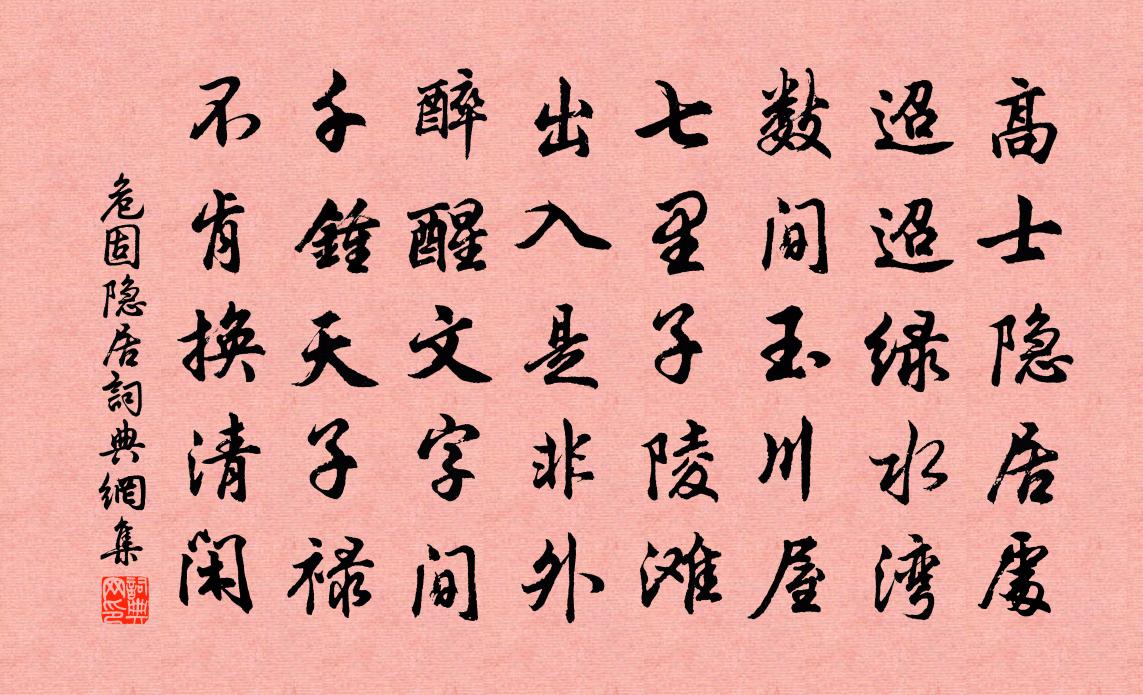 高士隐居處
迢迢绿水湾
数间玉川屋
七里子陵滩
出入是非外
醉醒文字间
千鍾天子禄
不肯换清闲
危固隐居詞典網集
詞典网印